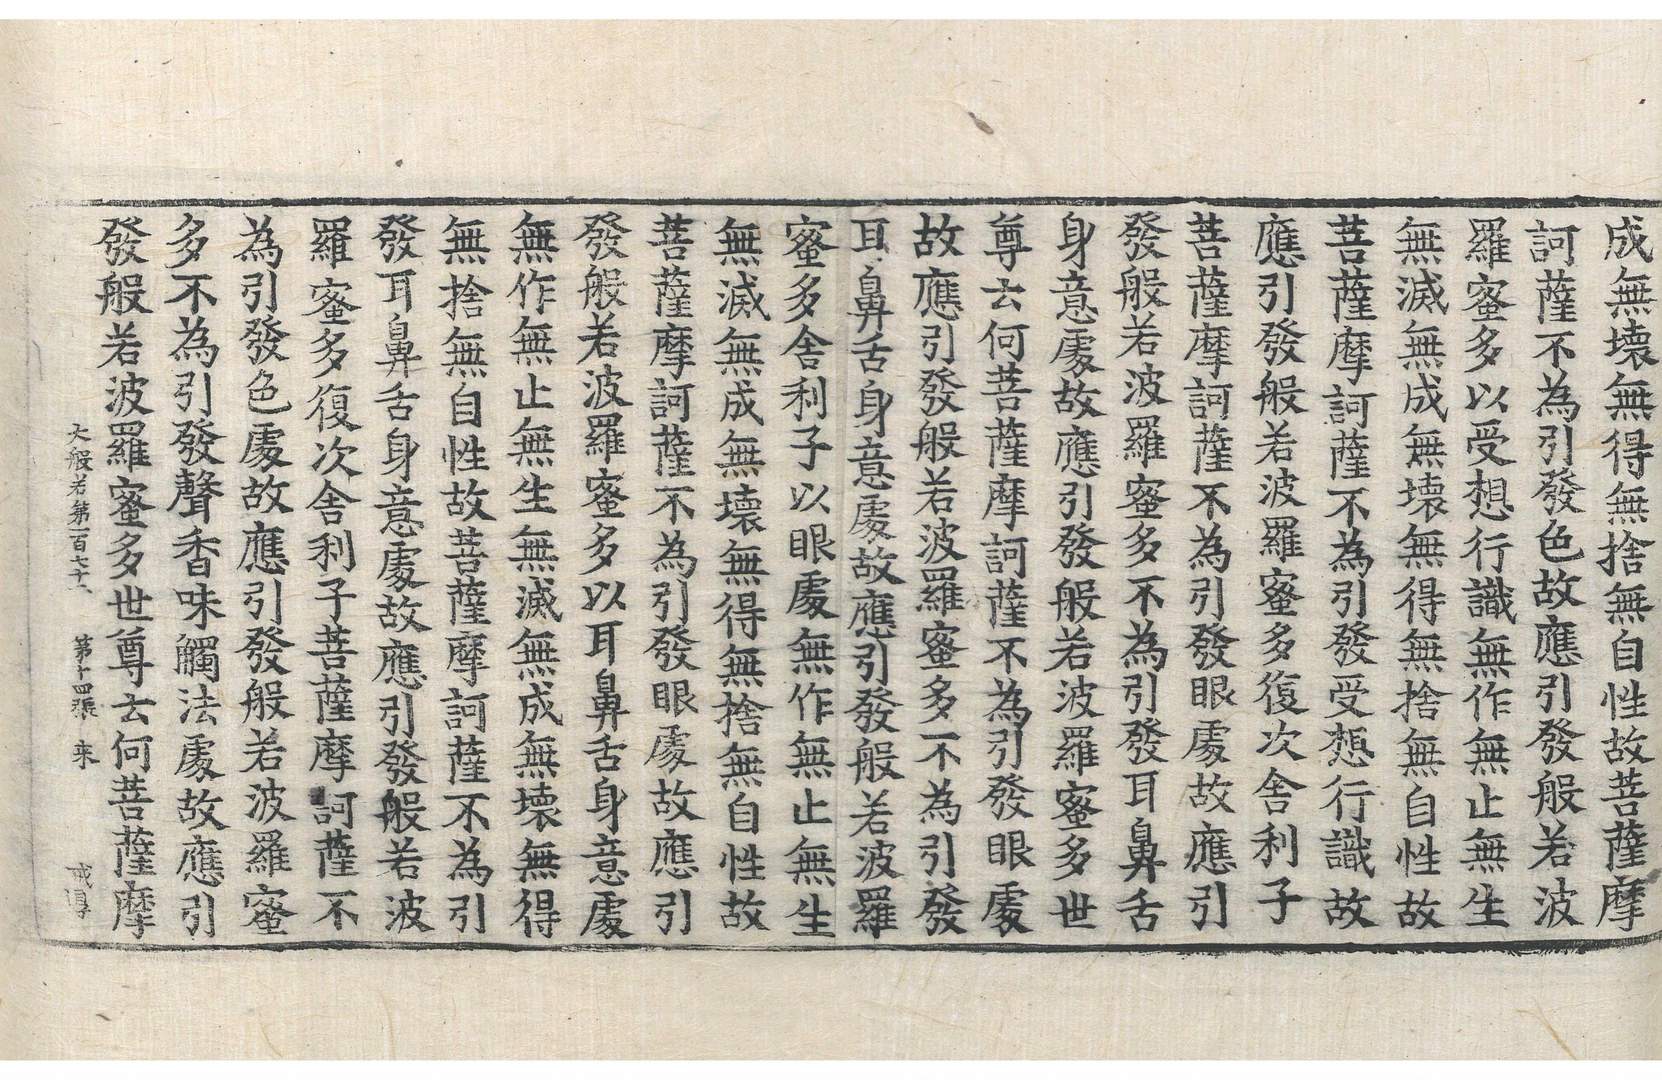 成無壞無得無捨無自性故菩薩摩
訶薩不為引發色故應引發般若波
羅蜜多以受想行識無作無止無生
無滅無成無壞無得無捨無自性故
菩薩摩訶薩不為引發受想行識故
應引發般若波羅蜜多復次舍利子
菩薩摩訶薩不為引發眼處故應引
發般若波羅蜜多不為引發耳鼻舌
身意處故應引發般若波羅蜜多世
尊云何菩薩摩訶薩不為引發眼處
故應引發般若波羅蜜多不為引發
耳鼻舌身意處故應引發般若波羅
蜜多舍利子以眼處無作無止無生
無滅無成無壞無得無捨無自性故
菩薩摩訶薩不為引發眼處故應引
發般若波羅蜜多以耳鼻舌身意處
無作無止無生無滅無成無壞無得
無捨無自性故菩薩摩訶薩不為引
發耳鼻舌身意處故應引發般若波
羅蜜多復次舍利子菩薩摩訶薩不
為引發色處故應引發般若波羅蜜
多不為引發聲香味觸法處故應引
發般若波羅蜜多世尊云何菩薩摩
大般若第一百七十一 第十四張 来